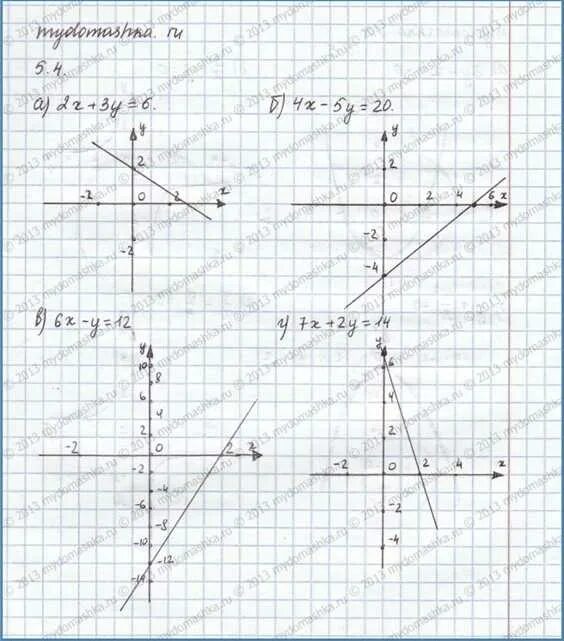 mydomashka.ru
5.4.
а) 2x+3y=6.
y
2
-2
0
2
x
-2
б) 4x-5y=20.
y
2
0
2
4
6
x
-2
-4
в) 6x-y=12
y
10
8
6
4
2
-2
0
2
x
-2
-4
-6
-8
-10
-12
-14
г) 7x+2y=14
y
6
4
2
-2
0
2
4
x
-2
-4
© 2013 mydomashka.ru